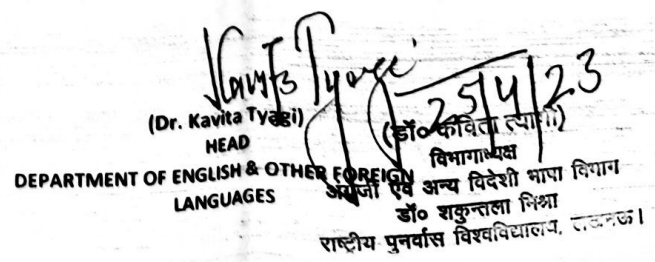 Kavita Tyagi
25/4/23
(Dr. Kavita Tyagi)
HEAD
DEPARTMENT OF ENGLISH & OTHER FOREIGN
LANGUAGES
(डॉ० कविता त्यागी)
विभागाध्यक्ष
अंग्रेजी एवं अन्य विदेशी भाषा विभाग
डॉ० शकुन्तला मिश्रा
राष्ट्रीय पुनर्वास विश्वविद्यालय, लखनऊ।